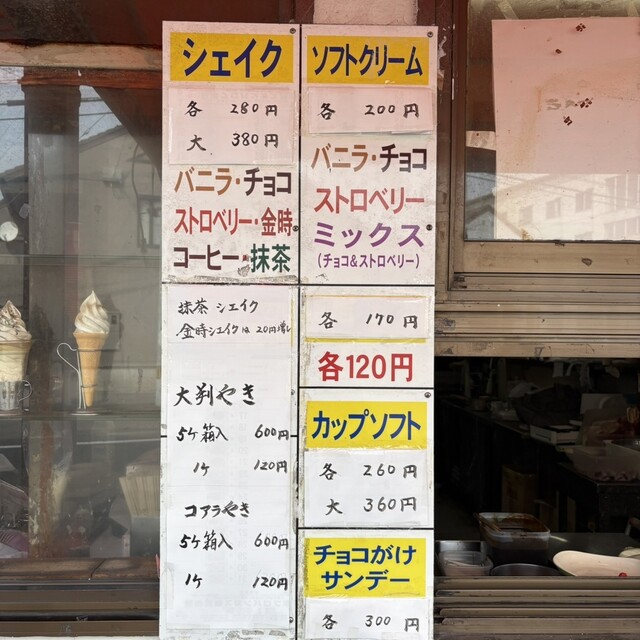 シェイク
各 280円
大 380円
バニラ・チョコ
ストロベリー・金時
コーヒー・抹茶
抹茶 シェイク
金時シェイクは 20円増し
大判やき
5ケ箱入 600円
1ケ 120円
コアラやき
5ケ箱入 600円
1ケ 120円
ソフトクリーム
各 200円
バニラ・チョコ
ストロベリー
ミックス
(チョコ&ストロベリー)
各 170円
各120円
カップソフト
各 260円
大 360円
チョコがけ
サンデー
各 300円